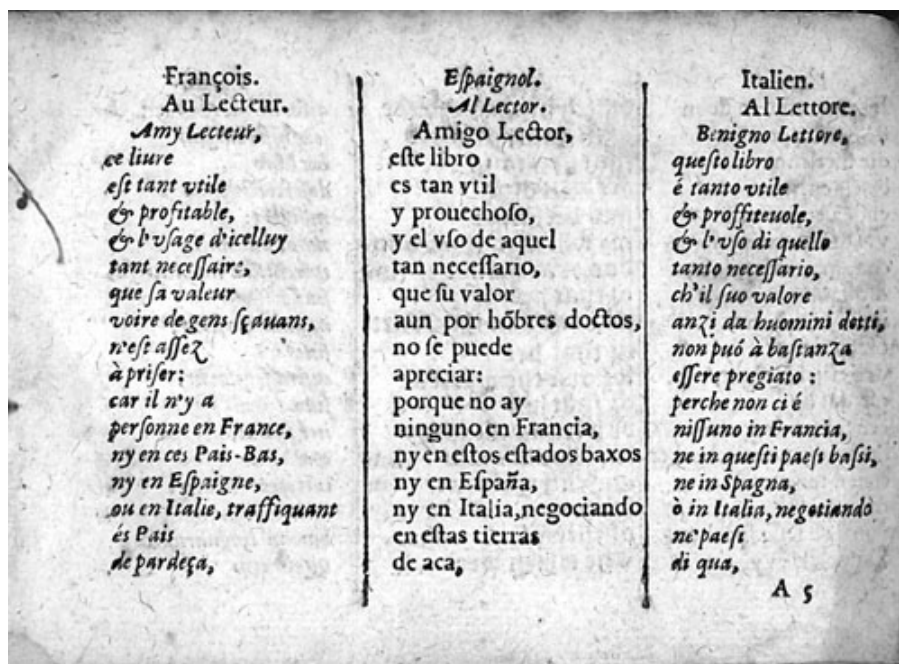 François.
Au Lecteur.
Amy Lecteur,
ce liure
est tant vtile
& profitable,
& l'vsage d'icelluy
tant necessaire,
que sa valeur
voire de gens sçauans,
n'est assez
à priser:
car il n'y a
personne en France,
ny en ces Pais-Bas,
ny en Espaigne,
ou en Italie, traffiquant
és Pais
de pardeça,
Espaignol.
Al Lector.
Amigo Lector,
este libro
es tan vtil
y prouechoso,
y el vso de aquel
tan necessario,
que su valor
aun por hõbres doctos,
no se puede
apreciar:
porque no ay
ninguno en Francia,
ny en estos estados baxos
ny en España,
ny en Italia, negociando
en estas tierras
de aca,
Italien.
Al Lettore.
Benigno Lettore,
questo libro
é tanto vtile
& proffiteuole,
& l'vso di quello
tanto necessario,
ch'il suo valore
anzi da huomini dotti,
non puó à bastanza
essere pregiato :
perche non ci é
nissuno in Francia,
ne in questi paesi bassi,
ne in Spagna,
ò in Italia, negotiando
ne' paesi
di qua,
A 5